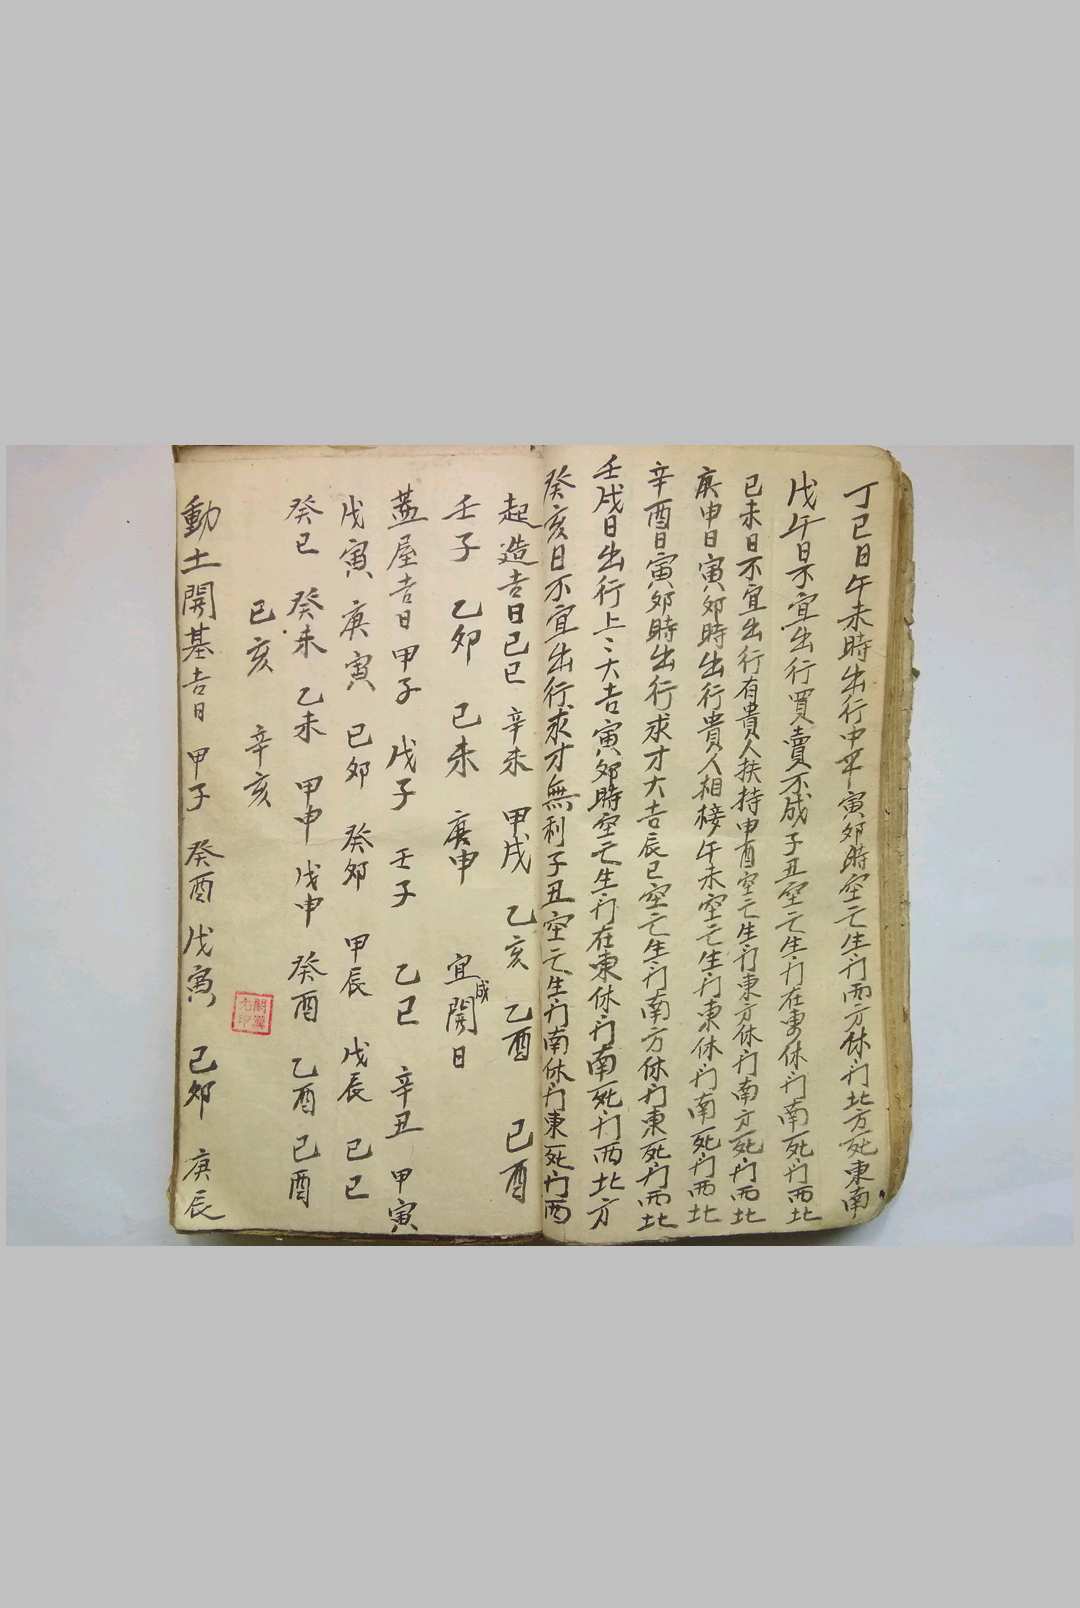 丁巳日午未時出行中平寅卯時空亡生门西方休门北方死東南
戊午日不宜出行買賣不成子丑空亡生门在東休门南死门西北
己未日不宜出行有貴人扶持申酉空亡生门東方休门南方死门西北
庚申日寅卯時出行貴人相接午未空亡生门東休门南死门西北
辛酉日寅卯時出行求才大吉辰巳空亡生门南方休门東死门西北
壬戌日出行上〻大吉寅卯時空亡生门在東休门南死门西北方
癸亥日不宜出行求才無利子丑空亡生门南休门東死门西
起造吉日己巳 辛未 甲戌 乙亥 乙酉 己酉
壬子 乙卯 己未 庚申 宜成開日
蓋屋吉日甲子 戊子 壬子 乙巳 辛丑 甲寅
戊寅 庚寅 己卯 癸卯 甲辰 戊辰 己巳
癸巳 癸未 乙未 甲申 戊申 癸酉 乙酉 己酉
己亥 辛亥
動土開基吉日 甲子 癸酉 戊寅 己卯 庚辰